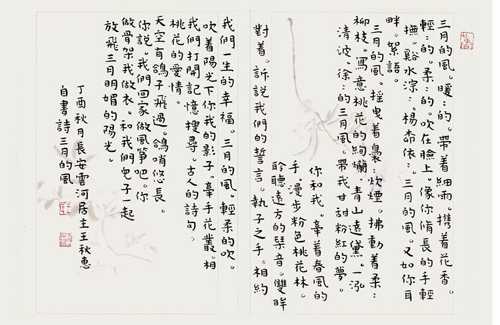 三月的风。暖:的。带着细雨。携着花香。
轻:的。柔:的。吹在脸上。像你修长的手轻
拂。谿水淙:。杨柳依:。三月的风。又如你耳
畔。絮语。
三月的风。摇曳着袅:炊烟。拂動着柔:
柳枝。寫意桃花的绚爛。青山遠黛。一泓
清波。徐:的三月風。帶我甘甜粉紅的夢。
你和我。牽着春風的
手。漫步粉色桃花林。
聆聽遠方的琹音。雙眸
對着。訴説我們的誓言。執子之手。相約
我們一生的幸福。三月的风。輕柔的吹。
吹着陽光下你我的影子。牽手花叢。相
我們打開記憶搜尋。古人的詩句。
桃花的愛情。
天空有鴿子飛過。鴿哨悠長。
你説。我們回家做風箏吧。你
做骨架我做衣。和我們兒子一起
放飛三月明媚的陽光。
丁酉秋月長安雲河居主王秋惠
自書詩三月的風